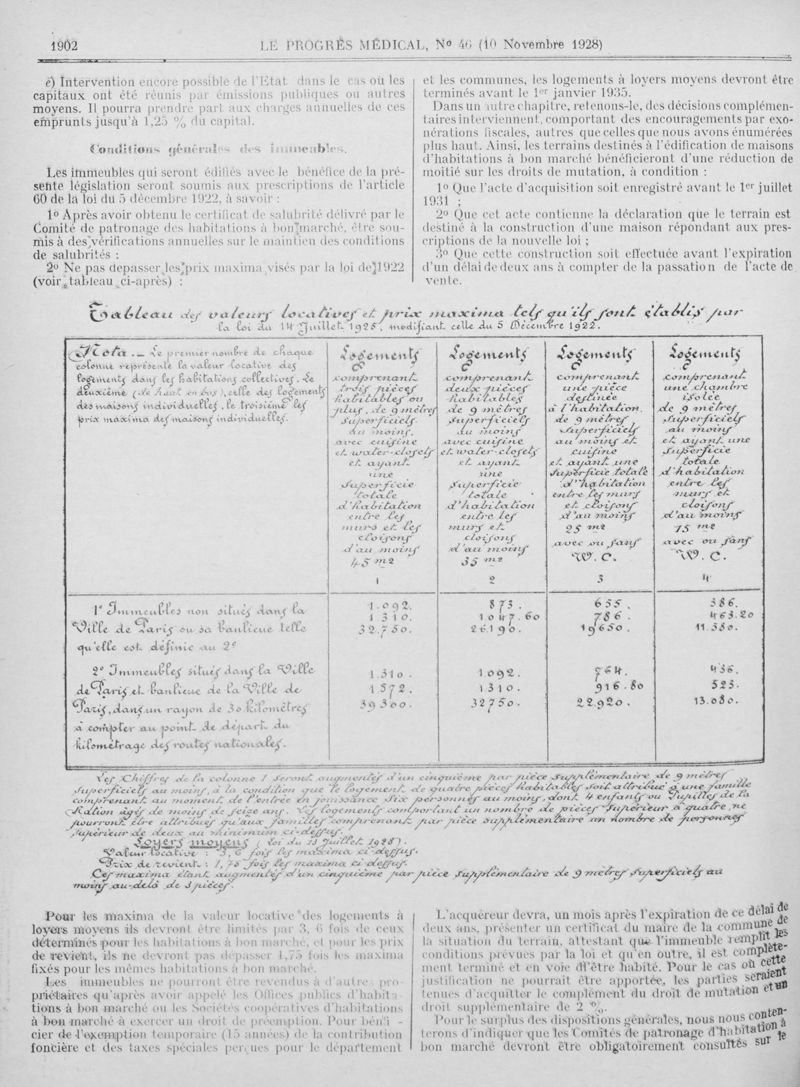 1902
LE PROGRÈS MÉDICAL, No 46 (10 Novembre 1928)
e) Intervention encore possible de l'Etat dans le cas où les
capitaux ont été réunis par émissions publiques ou autres
moyens. Il pourra prendre part aux charges annuelles de ces
emprunts jusqu'à 1,25 % du capital.
Conditions générales des immeubles.
Les immeubles qui seront édifiés avec le bénéfice de la pré-
sente législation seront soumis aux prescriptions de l'article
60 de la loi du 5 décembre 1922, à savoir :
1o Après avoir obtenu le certificat de salubrité délivré par le
Comité de patronage des habitations à bon marché, être sou-
mis à des vérifications annuelles sur le maintien des conditions
de salubrités :
2o Ne pas depasser les prix maxima visés par la loi de 1922
(voir tableau ci-après) :
et les communes, les logements à loyers moyens devront être
terminés avant le 1er janvier 1935.
Dans un autre chapitre, retenons-le, des décisions complémen-
taires interviennent, comportant des encouragements par exo-
nérations fiscales, autres que celles que nous avons énumérées
plus haut. Ainsi, les terrains destinés à l'édification de maisons
d'habitations à bon marché bénéficieront d'une réduction de
moitié sur les droits de mutation, à condition :
1o Que l'acte d'acquisition soit enregistré avant le 1er juillet
1931 ;
2o Que cet acte contienne la déclaration que le terrain est
destiné à la construction d'une maison répondant aux pres-
criptions de la nouvelle loi ;
3o Que cette construction soit effectuée avant l'expiration
d'un délai de deux ans à compter de la passation de l'acte de
vente.
Tableau des valeurs locatives et prix maxima tels qu'ils sont établis par
la loi du 14 Juillet 1928, modifiant celle du 5 Décembre 1922.
Nota._ Le premier nombre de chaque
colonne représente la valeur locative des
logements dans les habitations collectives. Le
deuxième (de haut en bas), celle des logements
des maisons individuelles, le troisième les
prix maxima des maisons individuelles.
Logements
C
comprenant
trois pièces
habitables ou
plus, de 9 mètres
superficiels
au moins,
avec cuisine
et water-closets
et ayant
une
superficie
totale
d'habitation
entre les
murs et les
cloisons
d'au moins
45 m2
1
Logements
C
comprenant
deux pièces
habitables
de 9 mètres
superficiels
au moins
avec cuisine
et water-closets
et ayant
une
superficie
totale
d'habitation
entre les
murs et
cloisons
d'au moins
35 m2
2
Logements
C
comprenant
une pièce
destinée
à l'habitation,
de 9 mètres
superficiels
au moins et
cuisine
et ayant une
superficie totale
d'habitation
entre les murs
et cloisons
d'au moins
25 m2
avec ou sans
W. C.
3
Logements
C
comprenant
une chambre
isolée
de 9 mètres
superficiels
au moins
et ayant une
superficie
totale
d'habitation
entre les
murs et
cloisons
d'au moins
15 m2
avec ou sans
W. C.
4
1o Immeubles non situés dans la
Ville de Paris ou sa banlieue telle
qu'elle est définie au 2o
1.092.
1 310.
32.750.
873.
1047.60
26190.
655.
786.
19650.
386.
463.20
11.580.
2o Immeubles situés dans la Ville
de Paris et banlieue de la Ville de
Paris, dans un rayon de 30 kilomètres
à compter au point de départ du
kilométrage des routes nationales.
1.310.
1572.
39300.
1092.
1310.
32750.
764.
916.80
22.920.
436.
523.
13.080.
Les Chiffres de la colonne 1 seront augmentés d'un cinquième par pièce supplémentaire de 9 mètres
superficiels au moins, à la condition que le logement de quatre pièces habitables soit attribué à une famille
comprenant au moment de l'entrée en jouissance six personnes au moins, dont 4 enfants ou Pupilles de la
Nation âgés de moins de seize ans. Les logements comportant un nombre de pièces supérieur à quatre, ne
pourront être attribués qu'aux familles comprenant par pièce supplémentaire un nombre de personnes
supérieur de deux au minimum ci-dessus.
Loyers moyens (loi du 13 Juillet 1928).
Valeur locative : 3,6 fois les maxima ci-dessus.
Prix de revient : 1,75 fois les maxima ci-dessus.
Ces maxima étant augmentés d'un cinquième par pièce supplémentaire de 9 mètres superficiels au
moins au-delà de 3 pièces.
Pour les maxima de la valeur locative des logements à
loyers moyens ils devront être limités par 3, 6 fois de ceux
déterminés pour les habitations à bon marché, et pour les prix
de revient, ils ne devront pas dépasser 1,75 fois les maxima
fixés pour les mêmes habitations à bon marché.
Les immeubles ne pourront être revendus à d'autres pro-
priétaires qu'après avoir appelé les Offices publics d'habita-
tions à bon marché ou les Sociétés coopératives d'habitations
à bon marché à exercer un droit de préemption. Pour bénéfi-
cier de l'exemption temporaire (15 années) de la contribution
foncière et des taxes spéciales perçues pour le département
L'acquéreur devra, un mois après l'expiration de ce délai de
deux ans, présenter un certificat du maire de la commune de
la situation du terrain, attestant que l'immeuble remplit les
conditions prévues par la loi et qu'en outre, il est complète-
ment terminé et en voie d'être habité. Pour le cas où cette
justification ne pourrait être apportée, les parties seraient
tenues d'acquitter le complément du droit de mutation et un
droit supplémentaire de 2 %.
Pour le surplus des dispositions générales, nous nous conten-
terons d'indiquer que les Comités de patronage d'habitation à
bon marché devront être obligatoirement consultés sur le